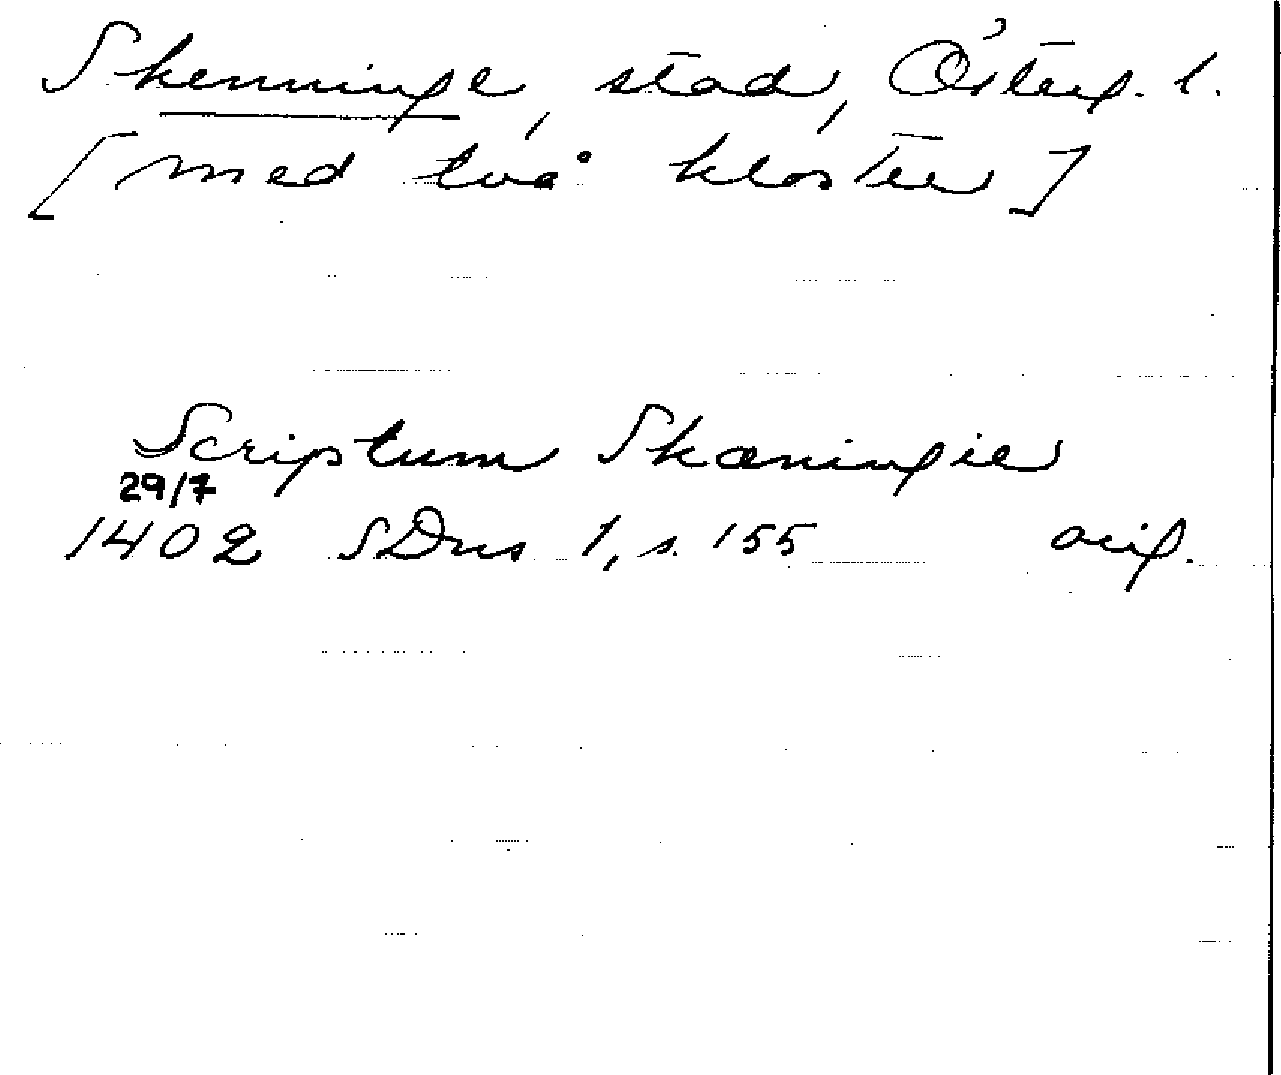 Skenninge, stad, Österg. l.
[med två kloster]
Scriptum Skæningie
29/7
1402 SDns 1, s. 155 orig.